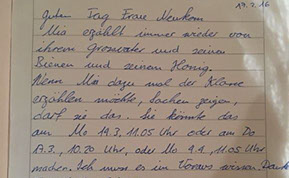 17.2.16
Guten Tag Frau Neukom
Mia erzählt immer wieder von
ihrem Grossvater und seinen
Bienen und seinem Honig.
Wenn Mia dazu mal der Klasse
erzählen möchte, Sachen zeigen,
darf sie das. Sie könnte das
am Mo 14.3, 11.05 Uhr oder am Do
17.3., 10.20 Uhr, oder Mo 4.4, 11.05 Uhr
machen. Ich muss es im Voraus wissen. Danke